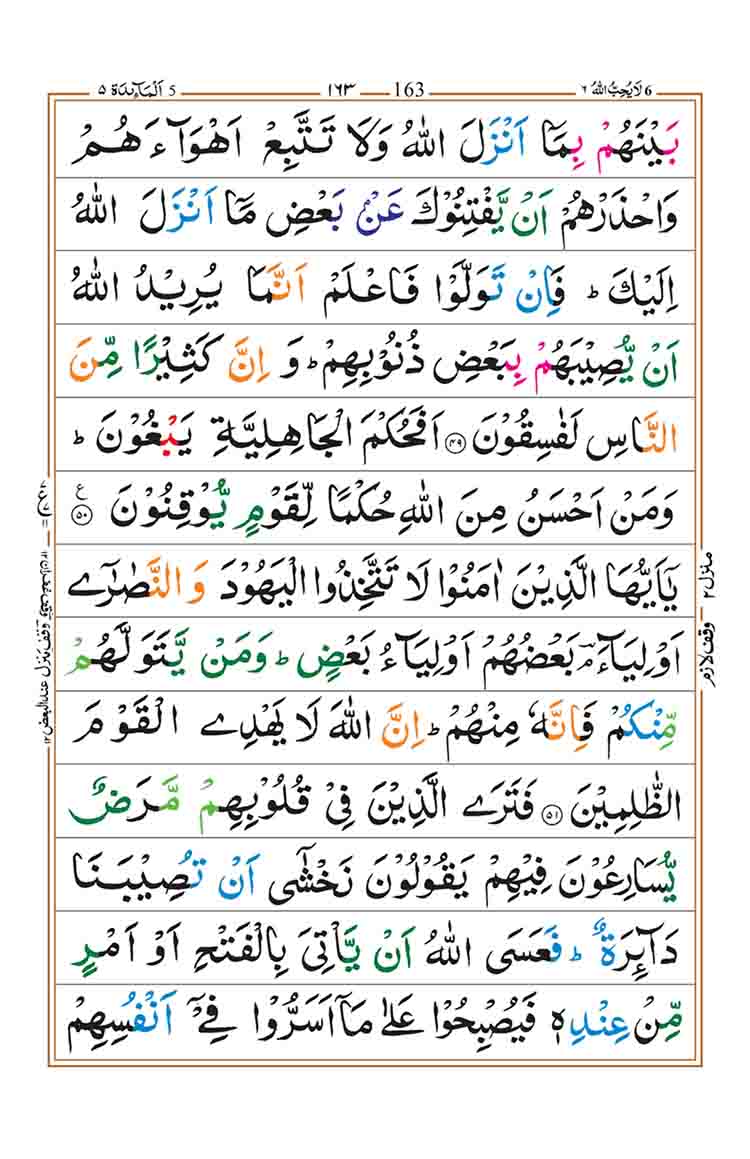 6 لَا یُحِبُّ اللّٰهُ ٦ 163 ١٦٣ 5 اَلْمَآئِدَة ٥
بَیْنَهُمْ بِمَاۤ اَنْزَلَ اللّٰهُ وَلَا تَتَّبِعْ اَهْوَآءَهُمْ
وَاحْذَرْهُمْ اَنْ یَّفْتِنُوْكَ عَنْۢ بَعْضِ مَاۤ اَنْزَلَ اللّٰهُ
اِلَیْكَ ؕ فَاِنْ تَوَلَّوْا فَاعْلَمْ اَنَّمَا یُرِیْدُ اللّٰهُ
اَنْ یُّصِیْبَهُمْ بِبَعْضِ ذُنُوْبِهِمْ ؕ وَ اِنَّ كَثِیْرًا مِّنَ
النَّاسِ لَفٰسِقُوْنَ ۝۴۹ اَفَحُكْمَ الْجَاهِلِیَّةِ یَبْغُوْنَ ؕ
وَمَنْ اَحْسَنُ مِنَ اللّٰهِ حُكْمًا لِّقَوْمٍ یُّوْقِنُوْنَ ۝۵۰ ع
یٰۤاَیُّهَا الَّذِیْنَ اٰمَنُوْا لَا تَتَّخِذُوا الْیَهُوْدَ وَ النَّصٰرٰۤی
اَوْلِیَآءَ ۘؔ بَعْضُهُمْ اَوْلِیَآءُ بَعْضٍ ؕ وَمَنْ یَّتَوَلَّهُمْ
مِّنْكُمْ فَاِنَّهٗ مِنْهُمْ ؕ اِنَّ اللّٰهَ لَا یَهْدِی الْقَوْمَ
الظّٰلِمِیْنَ ۝۵۱ فَتَرَی الَّذِیْنَ فِیْ قُلُوْبِهِمْ مَّرَضٌ
یُّسَارِعُوْنَ فِیْهِمْ یَقُوْلُوْنَ نَخْشٰۤی اَنْ تُصِیْبَنَا
دَآئِرَةٌ ؕ فَعَسَی اللّٰهُ اَنْ یَّاْتِیَ بِالْفَتْحِ اَوْ اَمْرٍ
مِّنْ عِنْدِهٖ فَیُصْبِحُوْا عَلٰی مَاۤ اَسَرُّوْا فِیْۤ اَنْفُسِهِمْ
منزل ۲
وقف لازم